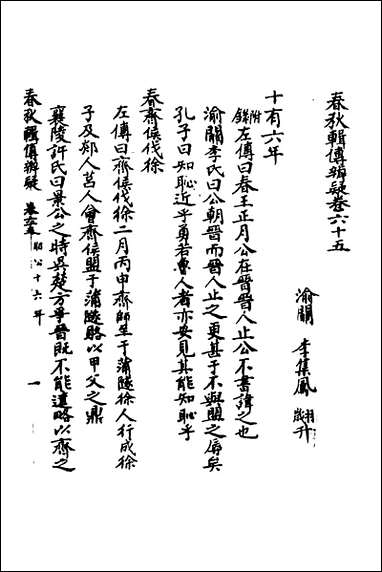 春秋輯傳辨疑卷六十五
渝關 李集鳳 翽升
十有六年
附錄左傳曰春王正月公在晉晉人止公不書諱之也
渝關李氏曰公朝晉而晉人止之更甚于不與盟之辱矣
孔子曰知恥近乎勇若魯人者亦安見其能知恥乎
春齊侯伐徐
左傳曰齊侯伐徐二月丙申齊師至于蒲隧徐人行成徐
子及郯人莒人會齊侯盟于蒲隧賂以甲父之鼎
襄陵許氏曰景公之時吳楚方爭晉既不能遠略以齊之
春秋輯傳辨疑 卷六十五 昭公十六年 一